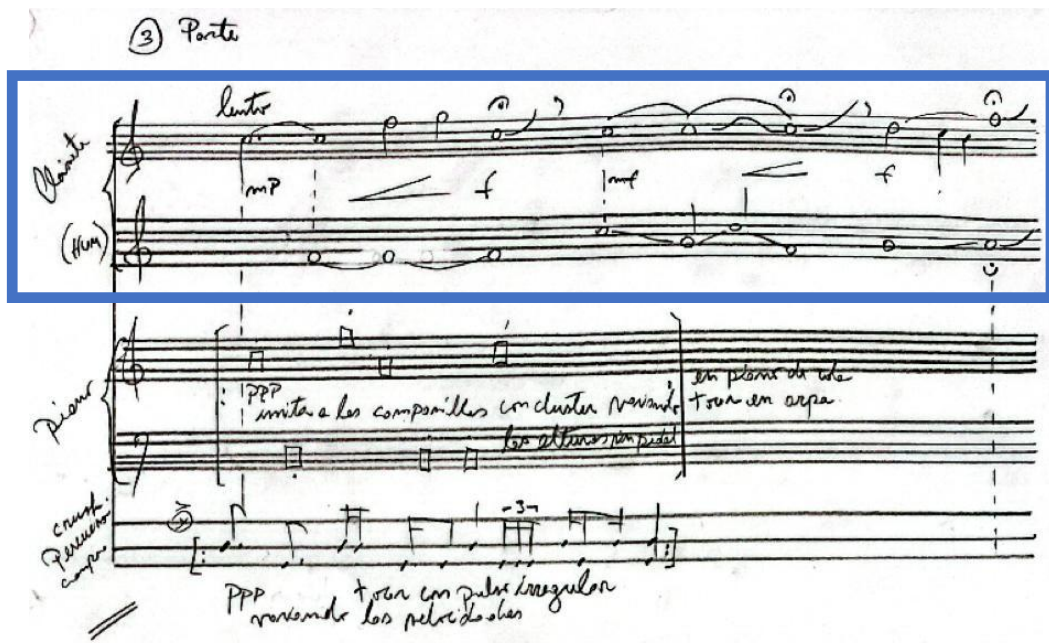 ③ Parte
lento
Clarinete
mp
f
mf
f
(HUM)
Piano
ppp
imita a las campanillas con cluster variando
las alturas sin pedal
en piano de cola
tocar en arpa.
Percusión
3
ppp tocar con pulso irregular
variando las velocidades